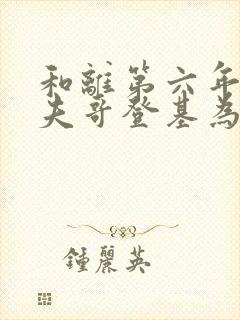 和離第六年
夫哥登基為
鍾麗英